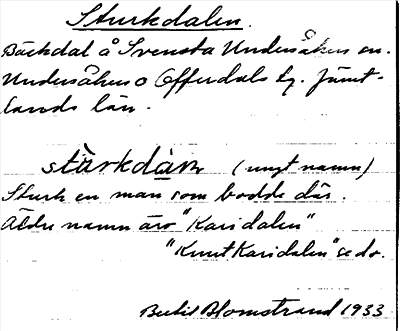 Sturkdalen.
Bäckdal å Svensta Undersåkers sn.
Undersåkers o Offerdals tg. Jämt-
lands län.
stùrkdàɳ (ungt namn)
Sturk en man som bodde där.
Äldre namn äro "Karidalen"
"Knut Karidalen" se do.
Bertil Blomstrand 1933